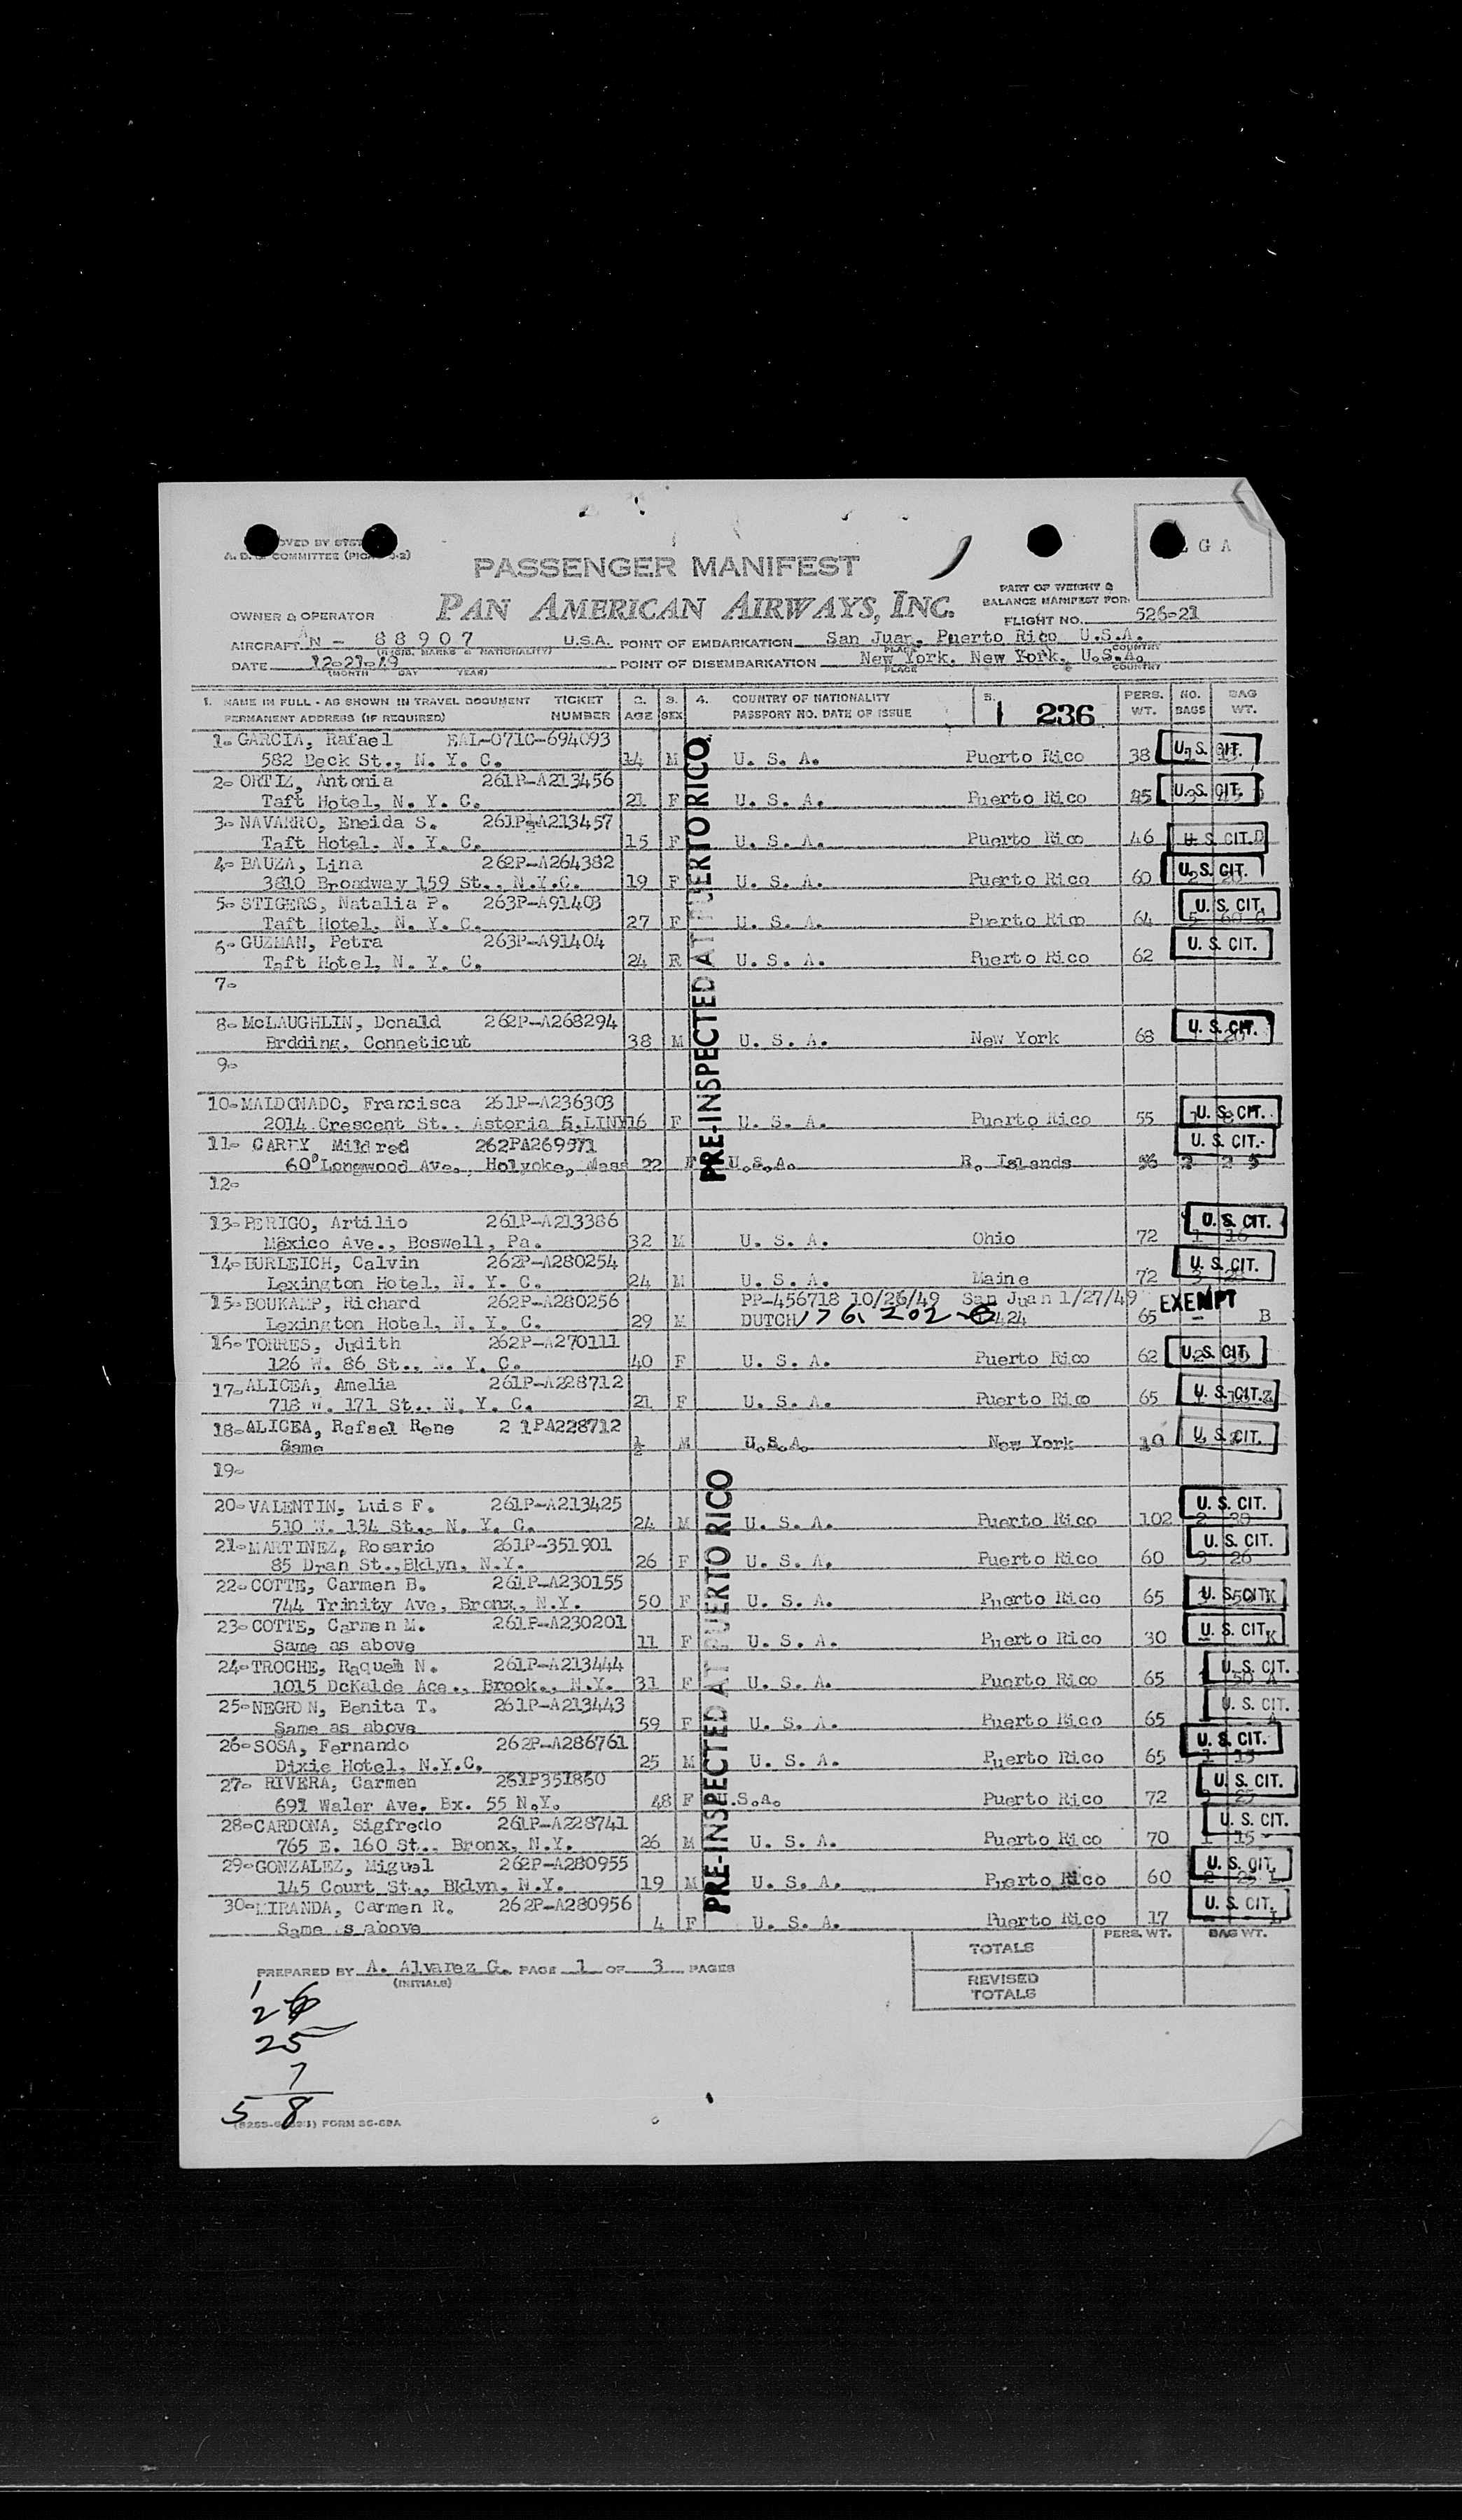 PASSENGER MANIFEST
L G A
A. D. COMMITTEE
PAN AMERICAN AIRWAYS, INC.
PART OF WEIGHT &
BALANCE MANIFEST FOR:
OWNER & OPERATOR
FLIGHT NO. 526-21
AIRCRAFT N - 88907 U.S.A. POINT OF EMBARKATION San Juan, Puerto Rico U.S.A.
(REGIS. MARKS & NATIONALITY) PLACE COUNTRY
DATE 12-21-49 POINT OF DISEMBARKATION New York, New York, U.S.A.
(MONTH DAY YEAR) PLACE COUNTRY
1. NAME IN FULL - AS SHOWN IN TRAVEL DOCUMENT TICKET 2. 3. 4. COUNTRY OF NATIONALITY 5. PERS. NO. BAG
PERMANENT ADDRESS (IF REQUIRED) NUMBER AGE SEX PASSPORT NO. DATE OF ISSUE 236 WT. BAGS WT.
PRE-INSPECTED AT PUERTO RICO
1- GARCIA, Rafael EAL-071C-694093
582 Beck St., N. Y. C. 14 M U. S. A. Puerto Rico 38 U. S. CIT.
2- ORTIZ, Antonia 261P-A213456
Taft Hotel, N. Y. C. 21 F U. S. A. Puerto Rico U. S. CIT.
3- NAVARRO, Eneida S. 261P-A213457
Taft Hotel. N. Y. C. 15 F U. S. A. Puerto Rico 46 U. S. CIT.
4- BAUZA, Lina 262P-A264382
3810 Broadway 159 St., N.Y.C. 19 F U. S. A. Puerto Rico 60 U. S. CIT.
5- STIGERS, Natalia P. 263P-A91403
Taft Hotel, N. Y. C. 27 F U. S. A. Puerto Rico 64 U. S. CIT.
6- GUZMAN, Petra 263P-A91404
Taft Hotel, N. Y. C. 24 U. S. A. Puerto Rico 62 U. S. CIT.
7-
8- McLAUGHLIN, Donald 262P-A268294
Brdding, Conneticut 38 M U. S. A. New York 68 U. S. CIT.
9-
10- MALDONADO, Francisca 261P-A236303
2014 Crescent St., Astoria 5, LINY 16 F U. S. A. Puerto Rico 55 U. S. CIT.
11- CAREY Mildred 262PA269971
Longwood Ave., Holyoke, Mass 22 F U.S.A. R. Islands 56 2 25 U. S. CIT.
12-
13- PERIGO, Artilio 261P-A213386
Mexico Ave., Boswell, Pa. 32 M U. S. A. Ohio 72 1 16 U. S. CIT.
14- BURLEICH, Calvin 262P-A280254
Lexington Hotel, N. Y. C. 24 M U. S. A. Maine 72 U. S. CIT.
15- BOUKAMP, Richard 262P-A280256 PP-456718 10/26/49 San Juan 1/27/49 EXEMPT
Lexington Hotel, N. Y. C. 29 M DUTCH 176.202 424 65 - B
16- TORRES, Judith 262P-A270111
126 W. 86 St., N. Y. C. 40 F U. S. A. Puerto Rico 62 U. S. CIT.
17- ALICEA, Amelia 261P-A228712
718 W. 171 St., N. Y. C. 21 F U. S. A. Puerto Rico 65 U. S. CIT.
18- ALICEA, Rafael Rene 2 1PA228712
Same ½ M U.S.A. New York 10 U. S. CIT.
19-
20- VALENTIN, Luis F. 261P-A213425
510 W. 134 St., N. Y. C. 24 M U. S. A. Puerto Rico 102 2 U. S. CIT.
21- MARTINEZ, Rosario 261P-351901
85 Dran St., Bklyn, N.Y. 26 F U. S. A. Puerto Rico 60 3 26 U. S. CIT.
22- COTTE, Carmen B. 261P-A230155
744 Trinity Ave, Bronx, N.Y. 50 F U. S. A. Puerto Rico 65 U. S. CIT. K
23- COTTE, Carmen M. 261P-A230201
Same as above 11 F U. S. A. Puerto Rico 30 U. S. CIT. K
24- TROCHE, Raquel N. 261P-A213444
1015 DeKalde Ace., Brook., N.Y. 31 F U. S. A. Puerto Rico 65 U. S. CIT.
25- NEGRON, Benita T. 261P-A213443
Same as above 59 F U. S. A. Puerto Rico 65 U. S. CIT.
26- SOSA, Fernando 262P-A286761
Dixie Hotel, N.Y.C. 25 M U. S. A. Puerto Rico 65 1 15 U. S. CIT.
27- RIVERA, Carmen 261P351860
691 Waler Ave. Bx. 55 N.Y. 48 F U.S.A. Puerto Rico 72 U. S. CIT.
28- CARDONA, Sigfredo 261P-A228741
765 E. 160 St., Bronx, N.Y. 26 M U. S. A. Puerto Rico 70 1 15 U. S. CIT.
29- GONZALEZ, Miguel 262P-A280955
145 Court St., Bklyn, N.Y. 19 M U. S. A. Puerto Rico 60 U. S. CIT.
30- MIRANDA, Carmen R. 262P-A280956
Same s above 4 F U. S. A. Puerto Rico 17 U. S. CIT.
PRE-INSPECTED AT PUERTO RICO
TOTALS PERS. WT. BAG WT.
PREPARED BY A. Alvarez G. PAGE 1 OF 3 PAGES
(INITIALS)
REVISED
TOTALS
26
25
7
58
FORM SC-69A